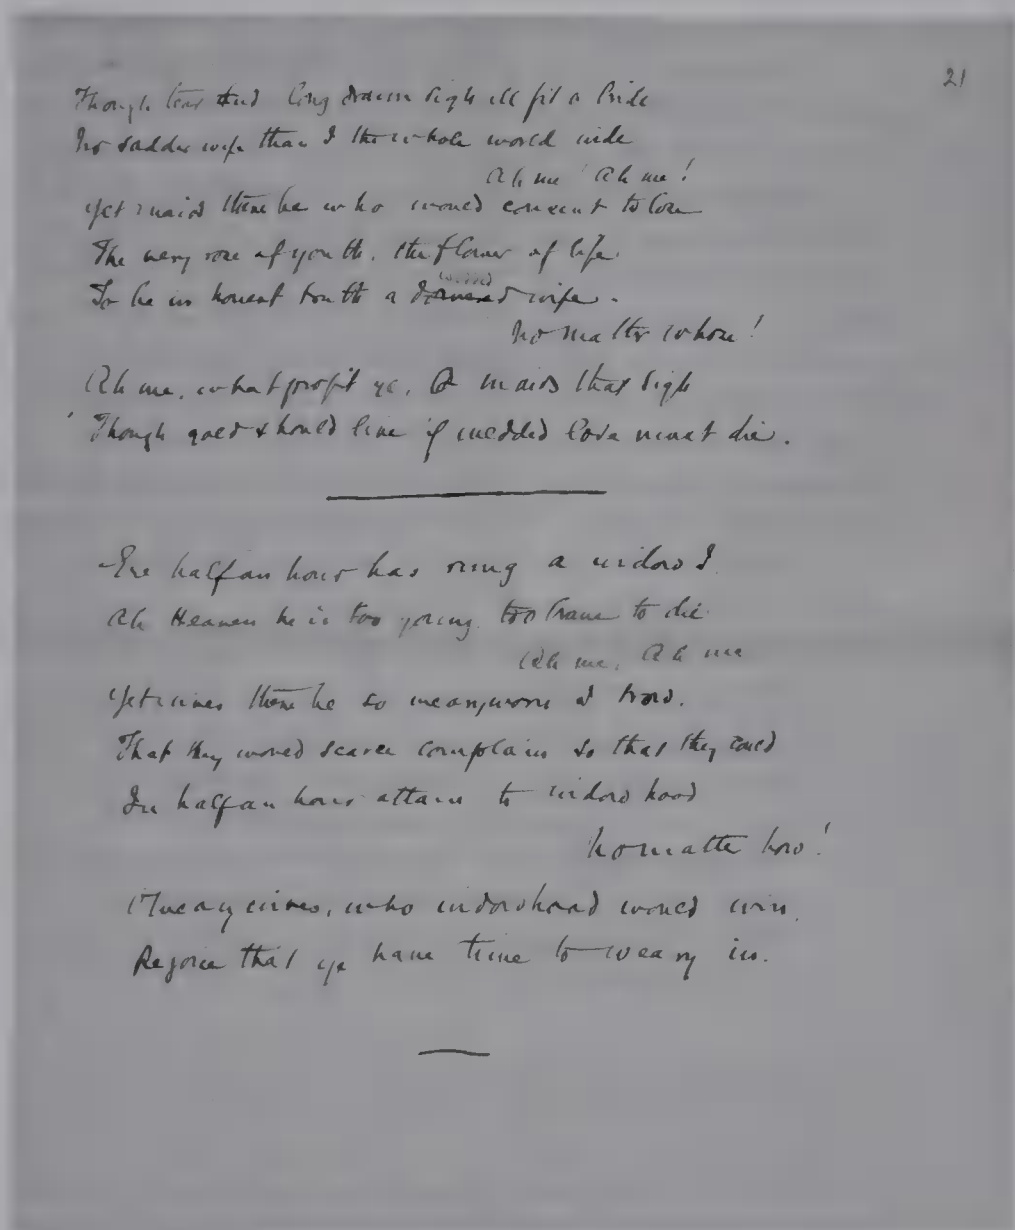 21
Though tear and long drawn sigh ill fit a bride
No sadder wife than I the whole world wide
Ah me! Ah me!
Yet maids there be who would consent to lose
The very rose of youth, the flower of life.
To be in honest truth a wife.
No matter whose!
Ah me, what profit ye, O maids that sigh
Though gold should live if wedded love must die.
Ere half an hour has rung a widow I
Ah Heaven he is too young, too brave to die
Ah me, Ah me
Yet wives there be so weary worn I trow,
That they would scarce complain so that they could
In half an hour attain to widowhood
No matter how!
O weary wives, who widowhood would win,
Rejoice that ye have time to weary in.